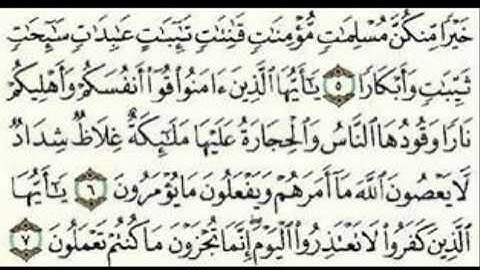 خَيْرًا مِّنكُنَّ مُسْلِمَٰتٍ مُّؤْمِنَٰتٍ قَٰنِتَٰتٍ تَٰٓئِبَٰتٍ عَٰبِدَٰتٍ سَٰٓئِحَٰتٍ
ثَيِّبَٰتٍ وَأَبْكَارًا ٥ يَٰٓأَيُّهَا ٱلَّذِينَ ءَامَنُوا۟ قُوٓا۟ أَنفُسَكُمْ وَأَهْلِيكُمْ
نَارًا وَقُودُهَا ٱلنَّاسُ وَٱلْحِجَارَةُ عَلَيْهَا مَلَٰٓئِكَةٌ غِلَاظٌ شِدَادٌ
لَّا يَعْصُونَ ٱللَّهَ مَآ أَمَرَهُمْ وَيَفْعَلُونَ مَا يُؤْمَرُونَ ٦ يَٰٓأَيُّهَا
ٱلَّذِينَ كَفَرُوا۟ لَا تَعْتَذِرُوا۟ ٱلْيَوْمَ ۖ إِنَّمَا تُجْزَوْنَ مَا كُنتُمْ تَعْمَلُونَ ٧